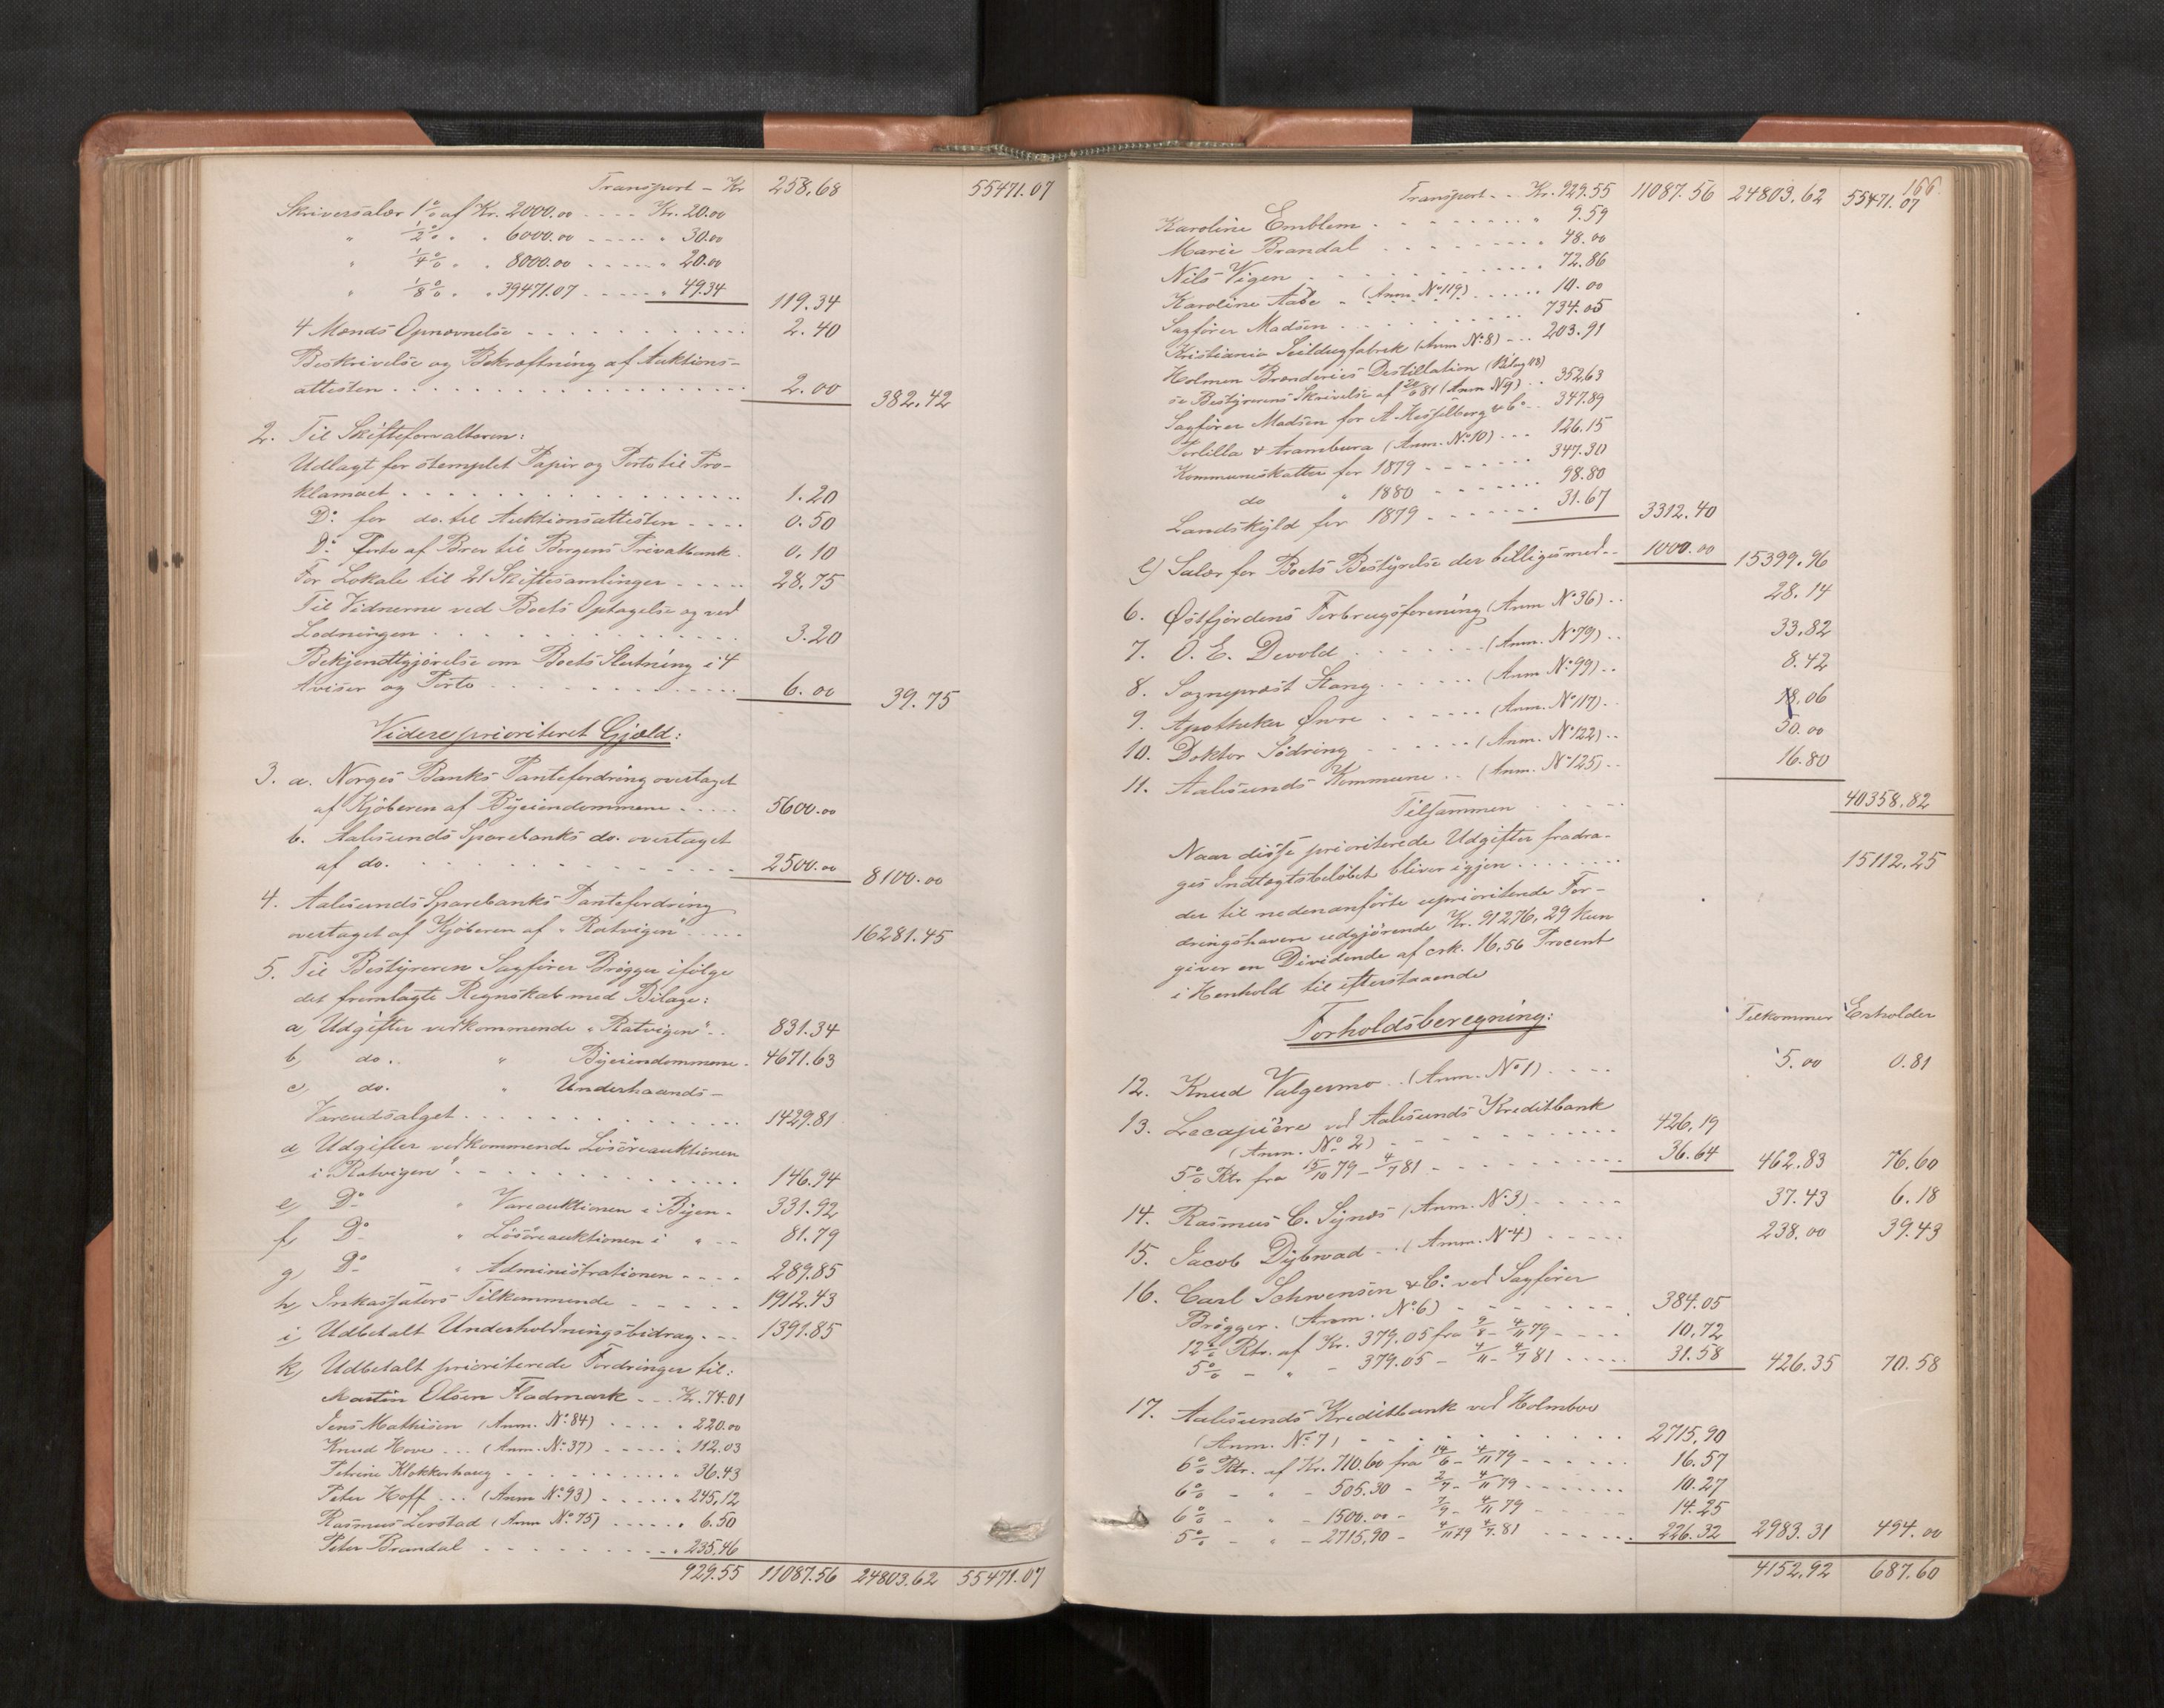 Transport - Kr 258.68 55471.07
Skriversalær 1% af Kr. 2000.00 .... Kr. 20.00
" 1/2% " " 6000.00 ..... " 30.00
" 1/4% " " 8000.00 ..... " 20.00
" 1/8% " " 39471.07 ..... " 49.34 119.34
4 Mænds Opnævnelse ......... 2.40
Beskrivelse og Bekræftning af Auktions-
attesten .......... 2.00 382.42
2. Til Skifteforvalteren:
Udlagt for stemplet Papir og Porto til Pro-
klamaet .......... 1.20
Do. for do. til Auktionsattesten .... 0.50
Do. Porto af Brev til Bergens Privatbank . 0.10
For Lokale til 21 Skiftesamlinger ..... 28.75
Til Vidnerne ved Boets Optagelse og ved
Lodningen .......... 3.20
Bekjendtgjørelse om Boets Slutning i 4
Aviser og Porto .......... 6.00 39.75
Videre prioriteret Gjæld:
3. a. Norges Banks Pantefordring overtaget
af Kjøberen af Byeiendommene ..... 5600.00
b. Aalesunds Sparebanks do. overtaget
af do. .......... 2500.00 8100.00
4. Aalesunds Sparebanks Pantefordring
overtaget af Kjøberen af "Ratvigen" ..... 16281.45
5. Til Bestyreren Sagfører Brøgger ifølge
det fremlagte Regnskab med Bilage:
a, Udgifter vedkommende "Ratvigen" .. 831.34
b, do. " Byeiendommene . 4671.63
c, do. " Underhaands-
Vareudsalget .......... 1429.81
d, Udgifter vedkommende Løsøreauktionen
i "Ratvigen" .......... 146.94
e, Do " Vareauktionen i Byen - 331.92
f, Do " Løsøreauktionen i " -- 81.79
g, Do " Administrationen .... 289.85
h, Inkassators Tilkommende ..... 1912.43
i, Udbetalt Underholdningsbidrag . -- 1391.85
k, Udbetalt prioriterede Fordringer til:
Martin Olsen Fladmark -.. Kr. 74.01
Jens Mathisen (Anm. No. 84) .... " 220.00
Knud Hove ... (Anm. No. 37) ..... " 112.03
Petrine Klokkerhaug .......... " 36.43
Peter Hoff ... (Anm No. 93) ..... " 245,12
Rasmus Lerstad (Anm No. 75) ..... " 6.50
Peter Brandal .......... " 235.46
929.55 11087.56 24803.62 55471.07
166.
Transport .. Kr. 929.55 11087.56 24803.62 55471.07
Karoline Emblem ......... " 9.59
Marie Brandal .......... " 48.00
Nils Vigen .......... " 72.86
Karoline Aase " (Anm. No 119) ..... " 10.00
Sagfører Madsen .......... 734.05
Kristiania Seildugfabrik (Anm No. 8) -.. 203.91
Holmen Brænderies Destillation (Bilag 08)
se Bestyrerens Skrivelse af 81 (Anm No 9) .. 352.63
Sagfører Madsen for A. Hesselberg & Co .. 347.89
Portilla & Arambura (Anm. No. 10) ... 126.15
Kommuneskatter for 1879 ....... 347.30
do " 1880 ....... 98.80
Landskyld for 1879 ....... 31.67 3312.40
l) Salær for Boets Bestyrelse der billiges med .. 1000.00 15399.96
6. Østfjordens Forbrugsforening (Anm No 36) .. 28.14
7. O. E. Devold ....... (Anm. No. 79) .. 33,82
8. Sogneprest Stang ...... (Anm No. 99) .. 8.42
9. Apotheker Øwre ...... (Anm. No 117) .. 18.06
10. Doktor Sødring ...... (Anm. No. 122) .. 50.00
11. Aalesunds Kommune .. (Anm. No 125) .. 16.80
Tilsammen ..... 40358.82
Naar disse prioriterede Udgifter fradra-
ges Indtægtsbeløbet bliver igjen ....... 15112.25
der til nedenanførte uprioriterede For-
dringshavere udgjørende Kr. 91276,29 kun
giver en Dividende af crk. 16,56 Procent
i Henhold til efterstaaende
Forholdsberegning: Tilkommer Erholder
12. Knud Valgermo .. (Anm. No 1) .... 5.00 0.81
13. Lecapière ved Aalesunds Kreditbank
(Anm. No 2) .......... 426,19
5% Rtr fra 15/10 79 - 4/7 81 ......... 36.64 462.83 76.60
14. Rasmus C. Synes (Anm. No. 3) ..... 37.43 6.18
15. Jacob Dybwad .. (Anm. No 4) ..... 238.00 39.43
16. Carl Schwensen & Co. ved Sagfører
Brøgger. (Anm. No. 6) ....... 384.05
12% Rtr. af Kr. 379.05 fra 9/8 - 4/11 79 .... 10.72
5% - " - 379.05 - 4/11 - 4/7 81 ..... 31.58 426.35 70.58
17. Aalesunds Kreditbank ved Holmboe
(Anm. No. 7) .......... 2715,90
6% Rtr. af Kr. 710.60 fra 14/6 - 4/11 79 ...... 16.57
6% - " - 505.30 - 2/7 - 4/11 79 ....... 10.27
6% - " - 1500.00 - 7/9 - 4/11 79 ....... 14.25
5% - " - 2715,90 - 4/11 79 4/7 81 ...... 226.32 2983.31 494.00
4152,92 687.60